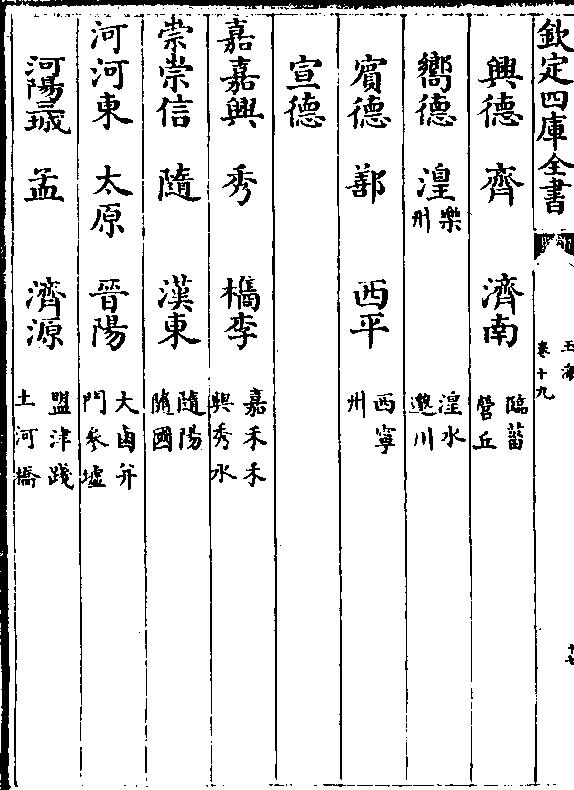 欽定四庫全書
玉海
卷十九
十七
興德 齊 濟南 臨菑 營丘
嚮德 湟 樂州 湟水 邈川
賓德 鄯 西平 西寧州
宣德
嘉嘉興 秀 檇李 嘉禾禾興秀水
崇崇信 隨 漢東 隨陽 隨國
河河東 太原 晉陽 大鹵并門參墟
河陽三城 孟 濟源 盟津踐土河橋